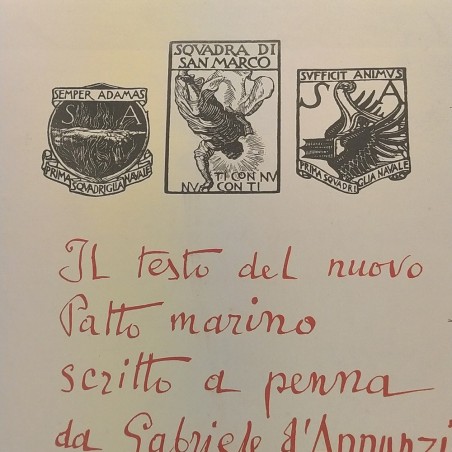 SEMPER ADAMAS
S A
PRIMA SQVADRIGLIA NAVALE
SQVADRA DI
SAN MARCO
TI CON NV
NV CON TI
SVFFICIT ANIMVS
S A
PRIMA SQVADRIGLIA NAVALE
Il testo del nuovo
Patto marino
scritto a penna
da Gabriele d'Annunzi